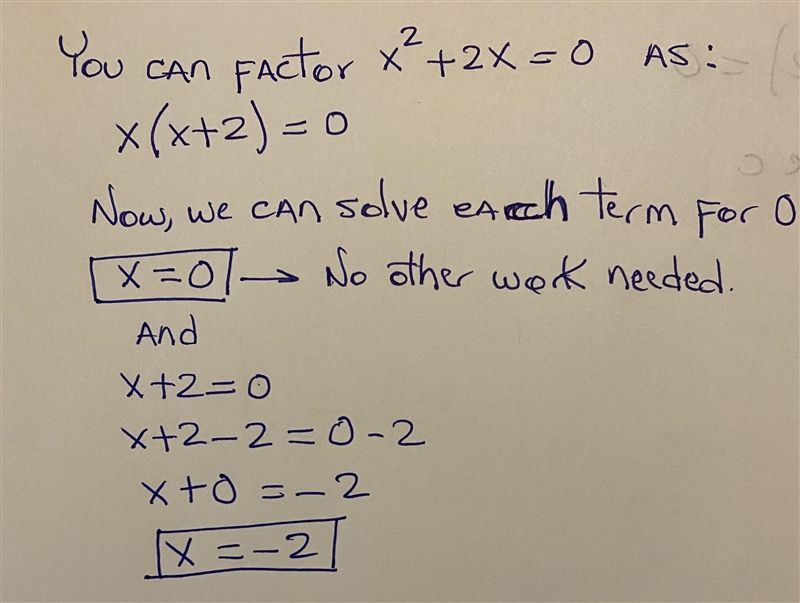 You can factor x² + 2x = 0 as:
x(x+2) = 0
Now, we can solve each term for 0
x = 0 → No other work needed.
And
x+2=0
x+2-2=0-2
x+0=-2
x=-2